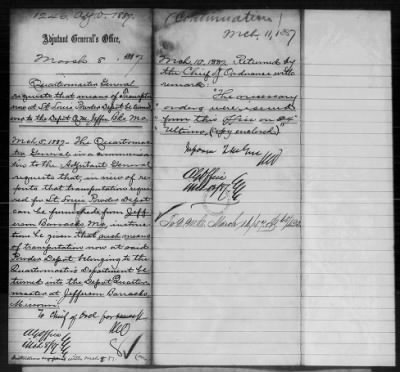 1226. A.G.O. 1887.
Adjutant General's Office,
March 8, 1887.
Quartermaster General
requests that means of transpttn
now at St. Louis Powder Depot be turned
into the Depot Q.M. Jeffn Bks Mo.
Mch 5, 1887. The Quartermas-
ter General in a communica-
tion to the Adjutant General
requests that, in view of re-
ports that transportation required
for St. Louis Powder Depot
can be furnished from Jeff-
erson Barracks Mo, instruc-
tion be given that such means
of transportation now at said
Powder Depot belonging to the
Quartermasters Department be
turned into the Depot Quarter-
master at Jefferson Barracks,
Missouri.
To Chief of Ord for remark
(Continuation)
Mch 11, 1887
Mch 10. 1887. Returned by
the Chief of Ordnance with
remark: "The necessary
orders were issued
from this office on 24"
ultimo, (Copy enclosed)"
To Q.M.G. March 12/87